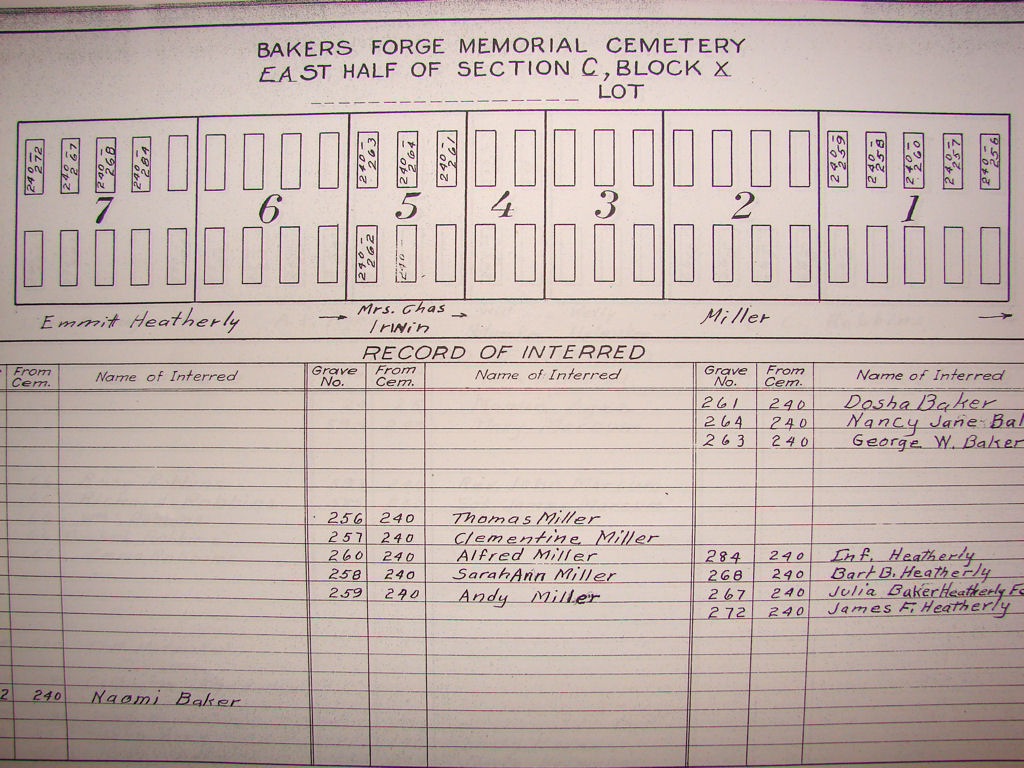 BAKERS FORGE MEMORIAL CEMETERY
EAST HALF OF SECTION C, BLOCK X
LOT
240-272 240-267 240-268 240-284 240-263 240-264 240-261 240-259 240-258 240-260 240-257 240-256
7 6 5 4 3 2 1
240-262 240-
Emmitt Heatherly Mrs. Chas Miller
Irwin
RECORD OF INTERRED
From Cem. Name of Interred Grave No. From Cem. Name of Interred Grave No. From Cem. Name of Interred
261 240 Dosha Baker
264 240 Nancy Jane Bal
263 240 George W. Baker
256 240 Thomas Miller
257 240 Clementine Miller
260 240 Alfred Miller 284 240 Inf. Heatherly
258 240 Sarah Ann Miller 268 240 Bart B. Heatherly
259 240 Andy Miller 267 240 Julia Baker Heatherly Fo
272 240 James F. Heatherly
2 240 Naomi Baker